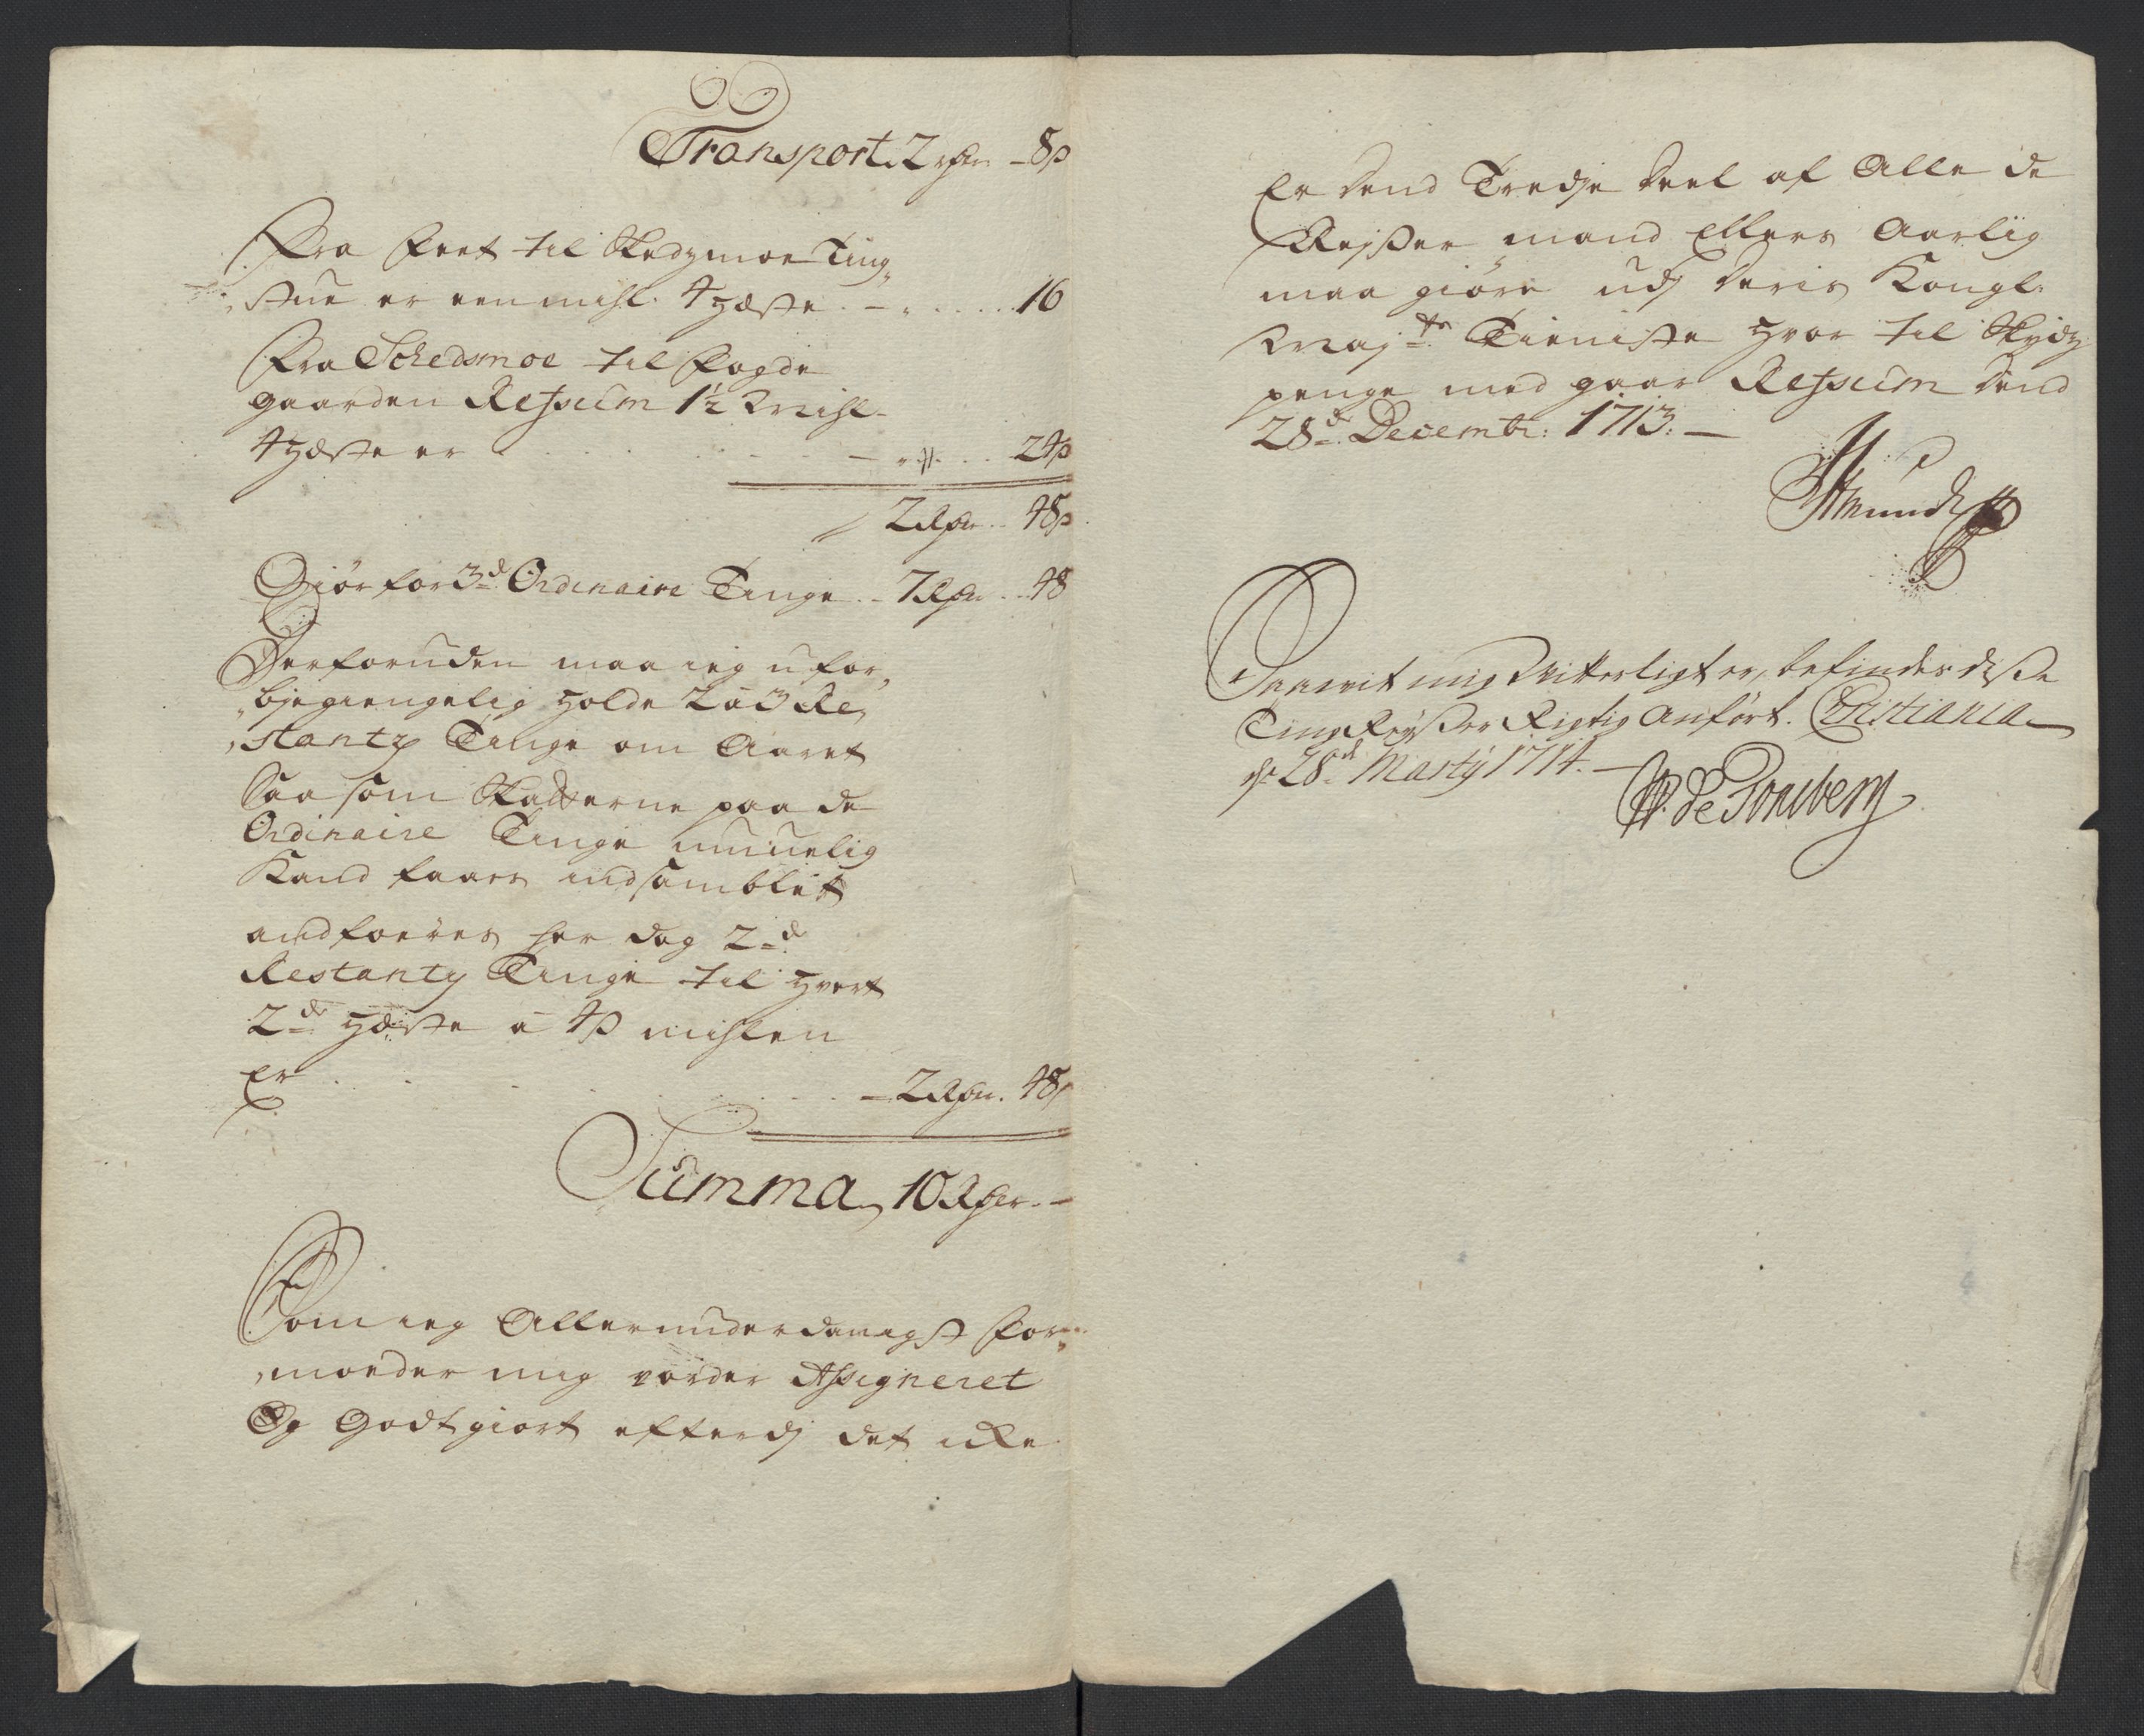 Transport. 2 rdr – 8 ß
Fra Feet til Skedzmoe Ting„
„stue er een mihl. 4 heste. – . . . . . 16
Fra Schedsmoe til fogde
gaarden Refsum 1½ Mihl.
4 heste er . . . . . – „ . . 24 ß
2 Rdr . . 48 ß
Giør for 3de Ordinaire Tinge . . 7 Rdr . . 48
Derforuden maa ieg ufor„
„bjegiengelig holde 2 à 3 Re„
„stantz Tinge om Aaret
Saasom Skatterne paa de
Ordinaire Tinge umuelig
Kand faaes indsamblet
andføeres her dog 2de
Restantz Tinge til hvert
2de heste à 4 ß mihlen
Er . . . . . – 2 Rdr. 48 ß
Summa, 10 Rdr. –
Som ieg Allerunderdanigst for„
„moeder mig vorder Assigneret
Og Godtgiort efterdj det icke
Er dend Tredje deel af Alle de
Rejsser mand Ellers Aarlig
maa giøre udj deris Kongl:
Majts Tieniste hvor til Skydz
penge med gaar Refsum dend
28de Decembr: 1713. –
Mund
Saavit mig Vitterligt er, befindes disse
Ting Reysser Rigtig Anført. Christiania
d: 28de Marty 1714. –
P. de Tonsberg